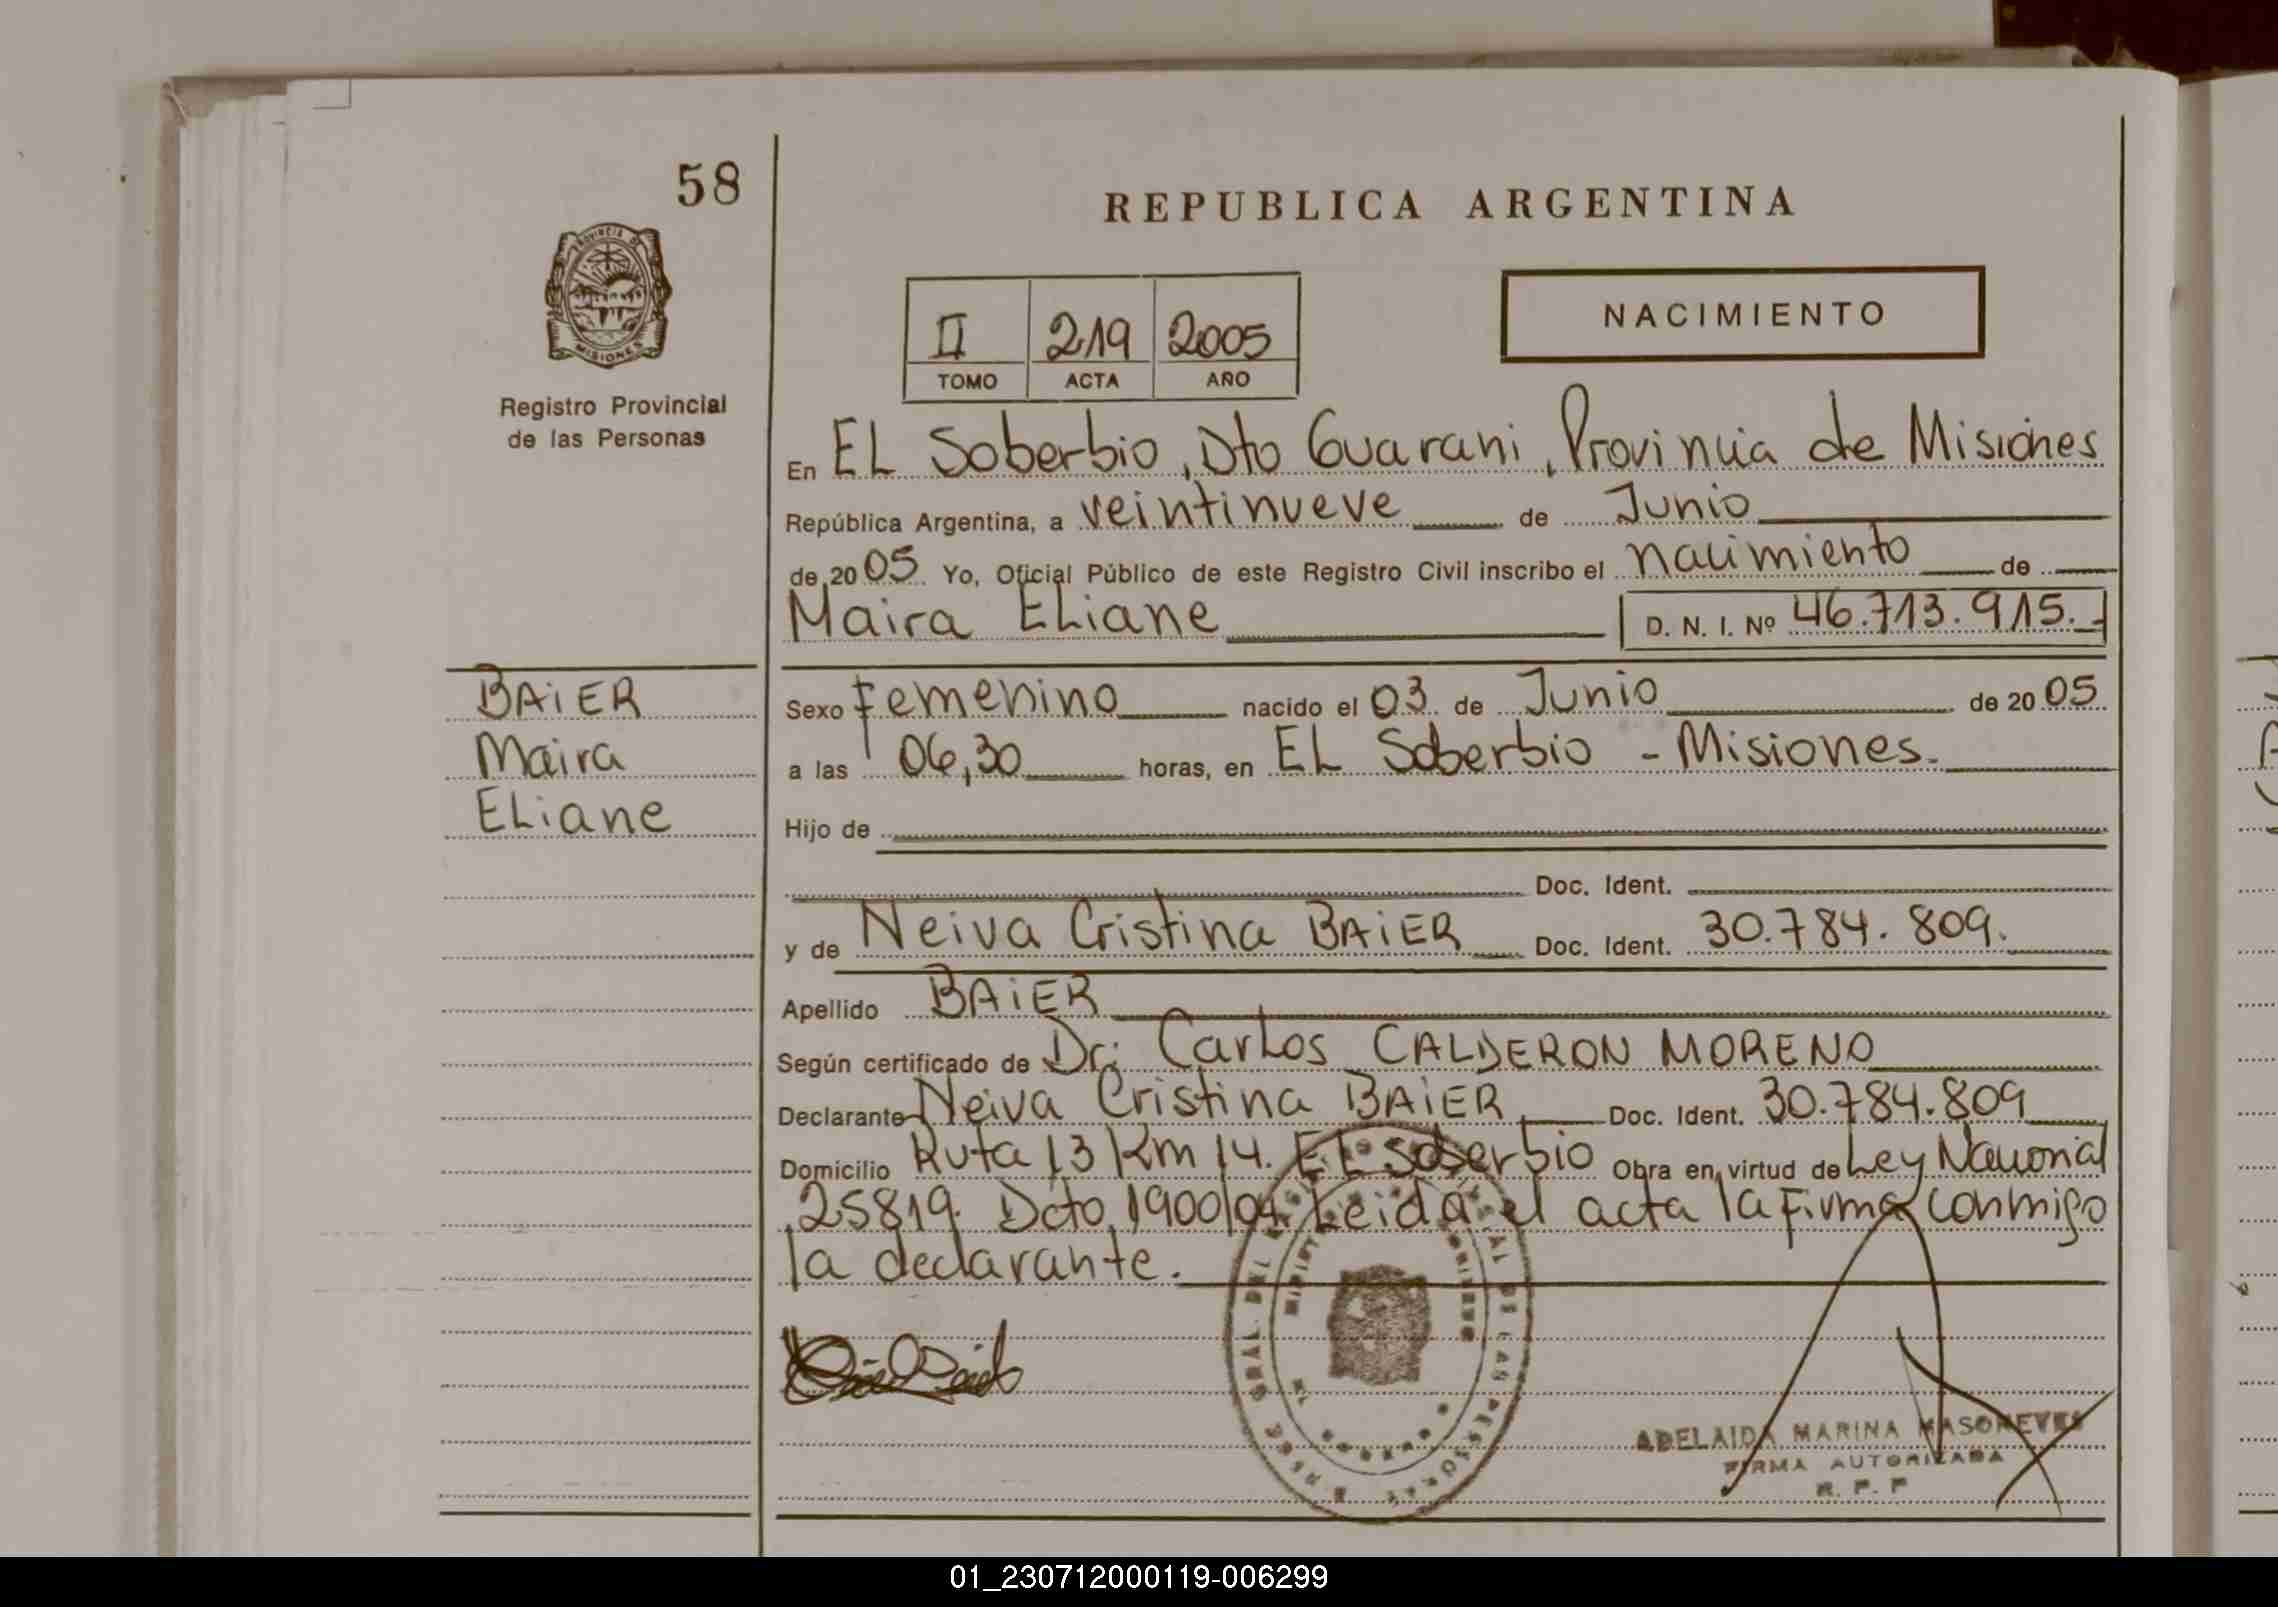 58
REPUBLICA ARGENTINA
PROVINCIA DE
MISIONES
Registro Provincial
de las Personas
NACIMIENTO
II 219 2005
TOMO ACTA AÑO
En EL Soberbio, Dto Guarani, Provincia de Misiones
República Argentina, a veintinueve de Junio
de 2005 Yo, Oficial Público de este Registro Civil inscribo el nacimiento de
Maira ELiane D. N. I. Nº 46.713.915.-
BAiER
Maira
ELiane
Sexo Femenino nacido el 03 de Junio de 2005
a las 06,30 horas, en EL Soberbio - Misiones.
Hijo de
Doc. Ident.
y de Neiva Cristina BAiER Doc. Ident. 30.784.809.
Apellido BAiER
Según certificado de Dr: Carlos CALDERON MORENO
Declarante Neiva Cristina BAiER Doc. Ident. 30.784.809
Domicilio Ruta 13 Km 14. EL Soberbio Obra en virtud de Ley Nacional
25819. Dcto 1900/04. Leida el acta la Firma conmigo
la declarante.
ADELAIDA MARINA
FIRMA AUTORIZADA
R. P. P
01_230712000119-006299